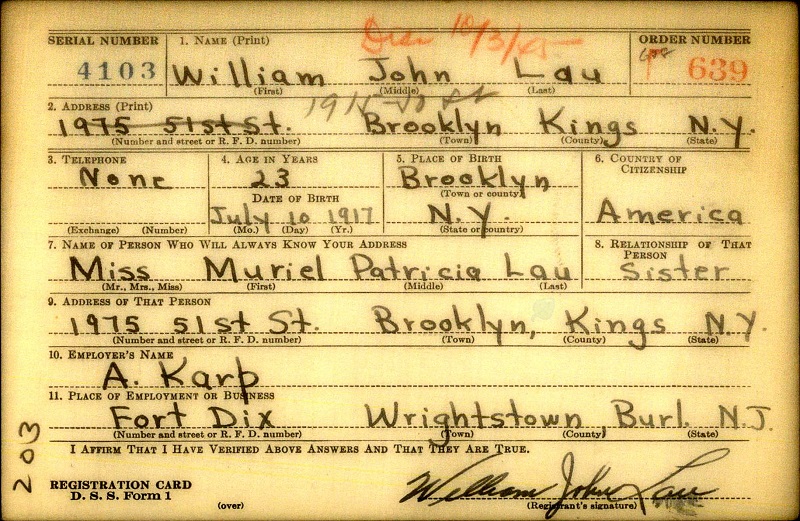 Disc 10/3/45
SERIAL NUMBER 1. NAME (Print) ORDER NUMBER
4103 William John Lau 639
(First) (Middle) (Last)
2. ADDRESS (Print)
1975 51st St. Brooklyn Kings N.Y.
(Number and street or R. F. D. number) (Town) (County) (State)
3. TELEPHONE 4. AGE IN YEARS 5. PLACE OF BIRTH 6. COUNTRY OF CITIZENSHIP
None 23 Brooklyn
(Town or county)
DATE OF BIRTH
July 10 1917 N.Y. America
(Exchange) (Number) (Mo.) (Day) (Yr.) (State or country)
7. NAME OF PERSON WHO WILL ALWAYS KNOW YOUR ADDRESS 8. RELATIONSHIP OF THAT PERSON
Miss Muriel Patricia Lau Sister
(Mr., Mrs., Miss) (First) (Middle) (Last)
9. ADDRESS OF THAT PERSON
1975 51st St. Brooklyn, Kings N.Y.
(Number and street or R. F. D. number) (Town) (County) (State)
10. EMPLOYER'S NAME
A. Karp
11. PLACE OF EMPLOYMENT OR BUSINESS
Fort Dix Wrightstown, Burl. N.J.
(Number and street or R. F. D. number) (Town) (County) (State)
I AFFIRM THAT I HAVE VERIFIED ABOVE ANSWERS AND THAT THEY ARE TRUE.
203
REGISTRATION CARD
D. S. S. Form 1
(over)
William John Lau
(Registrant's signature)